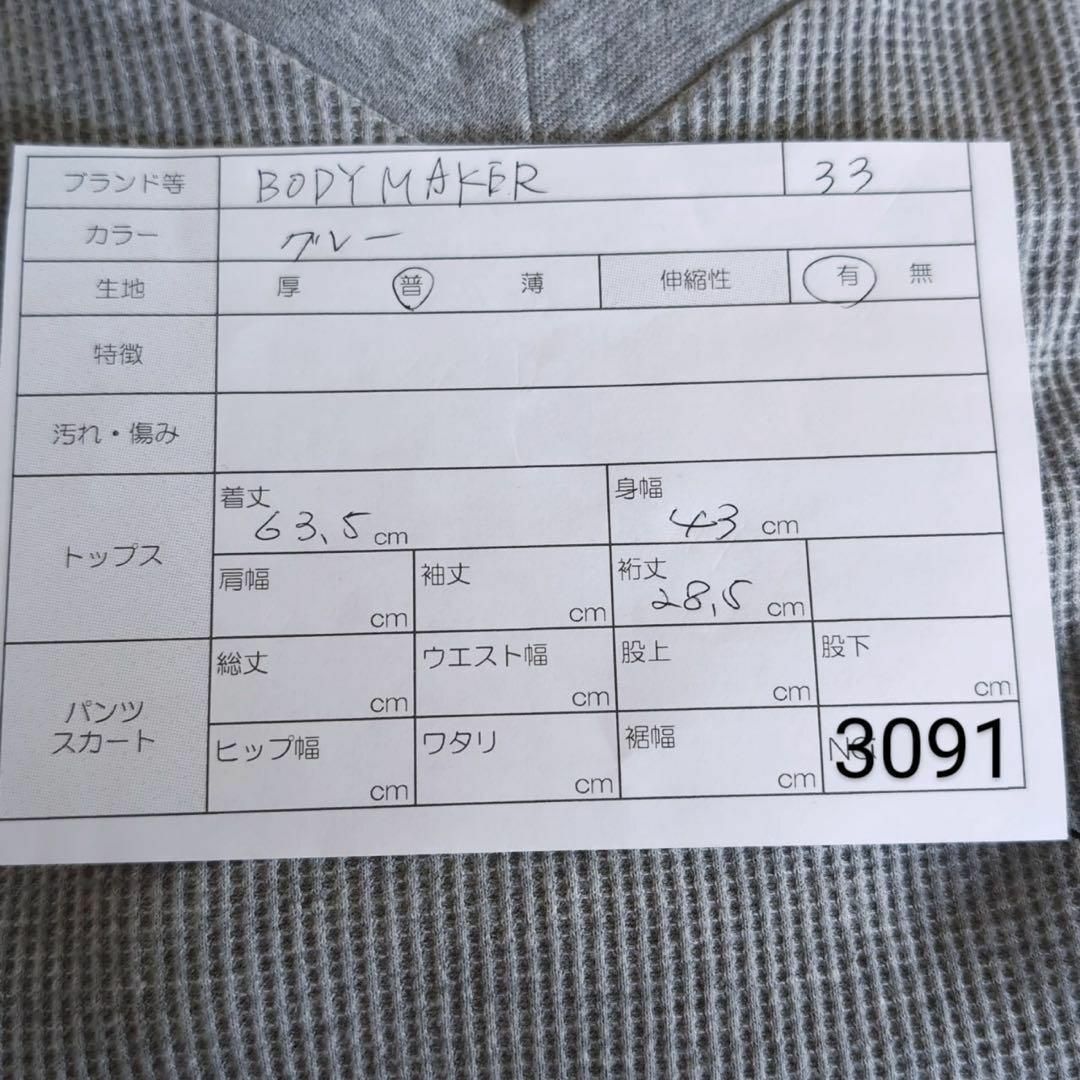 ブランド等 BODYMAKER 33
カラー グレー
生地 厚 普 薄 伸縮性 有 無
特徴
汚れ・傷み
トップス
着丈 63.5 cm 身幅 43 cm
肩幅 cm 袖丈 cm 裄丈 28.5 cm
パンツ
スカート
総丈 cm ウエスト幅 cm 股上 cm 股下 cm
ヒップ幅 cm ワタリ cm 裾幅 cm 3091